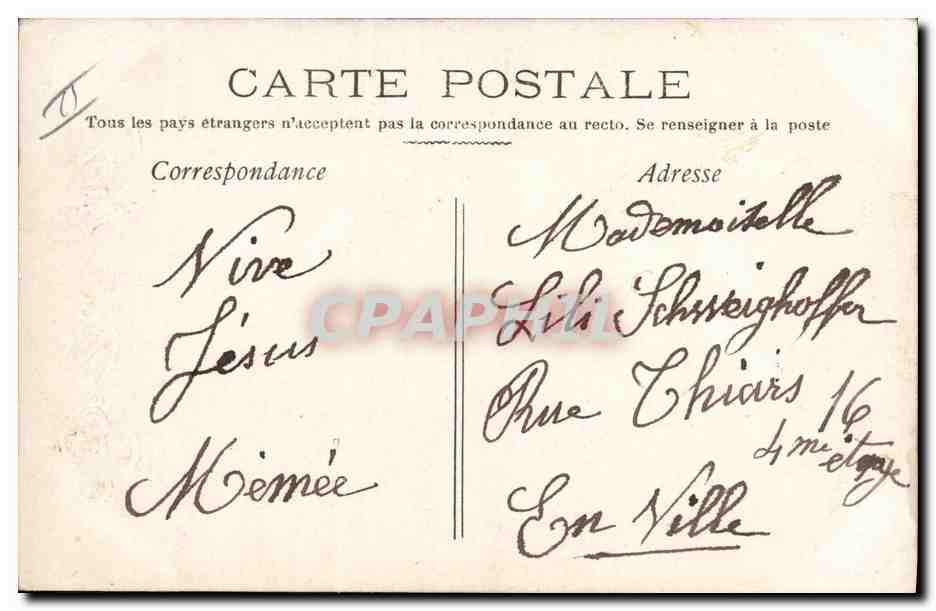 CARTE POSTALE
Tous les pays étrangers n'acceptent pas la correspondance au recto. Se renseigner à la poste
Correspondance
Vive
Jésus
Mémée
Adresse
Mademoiselle
Lili Schweighoffer
Rue Thiars 16
4me étage
En Ville
CPAPHIL